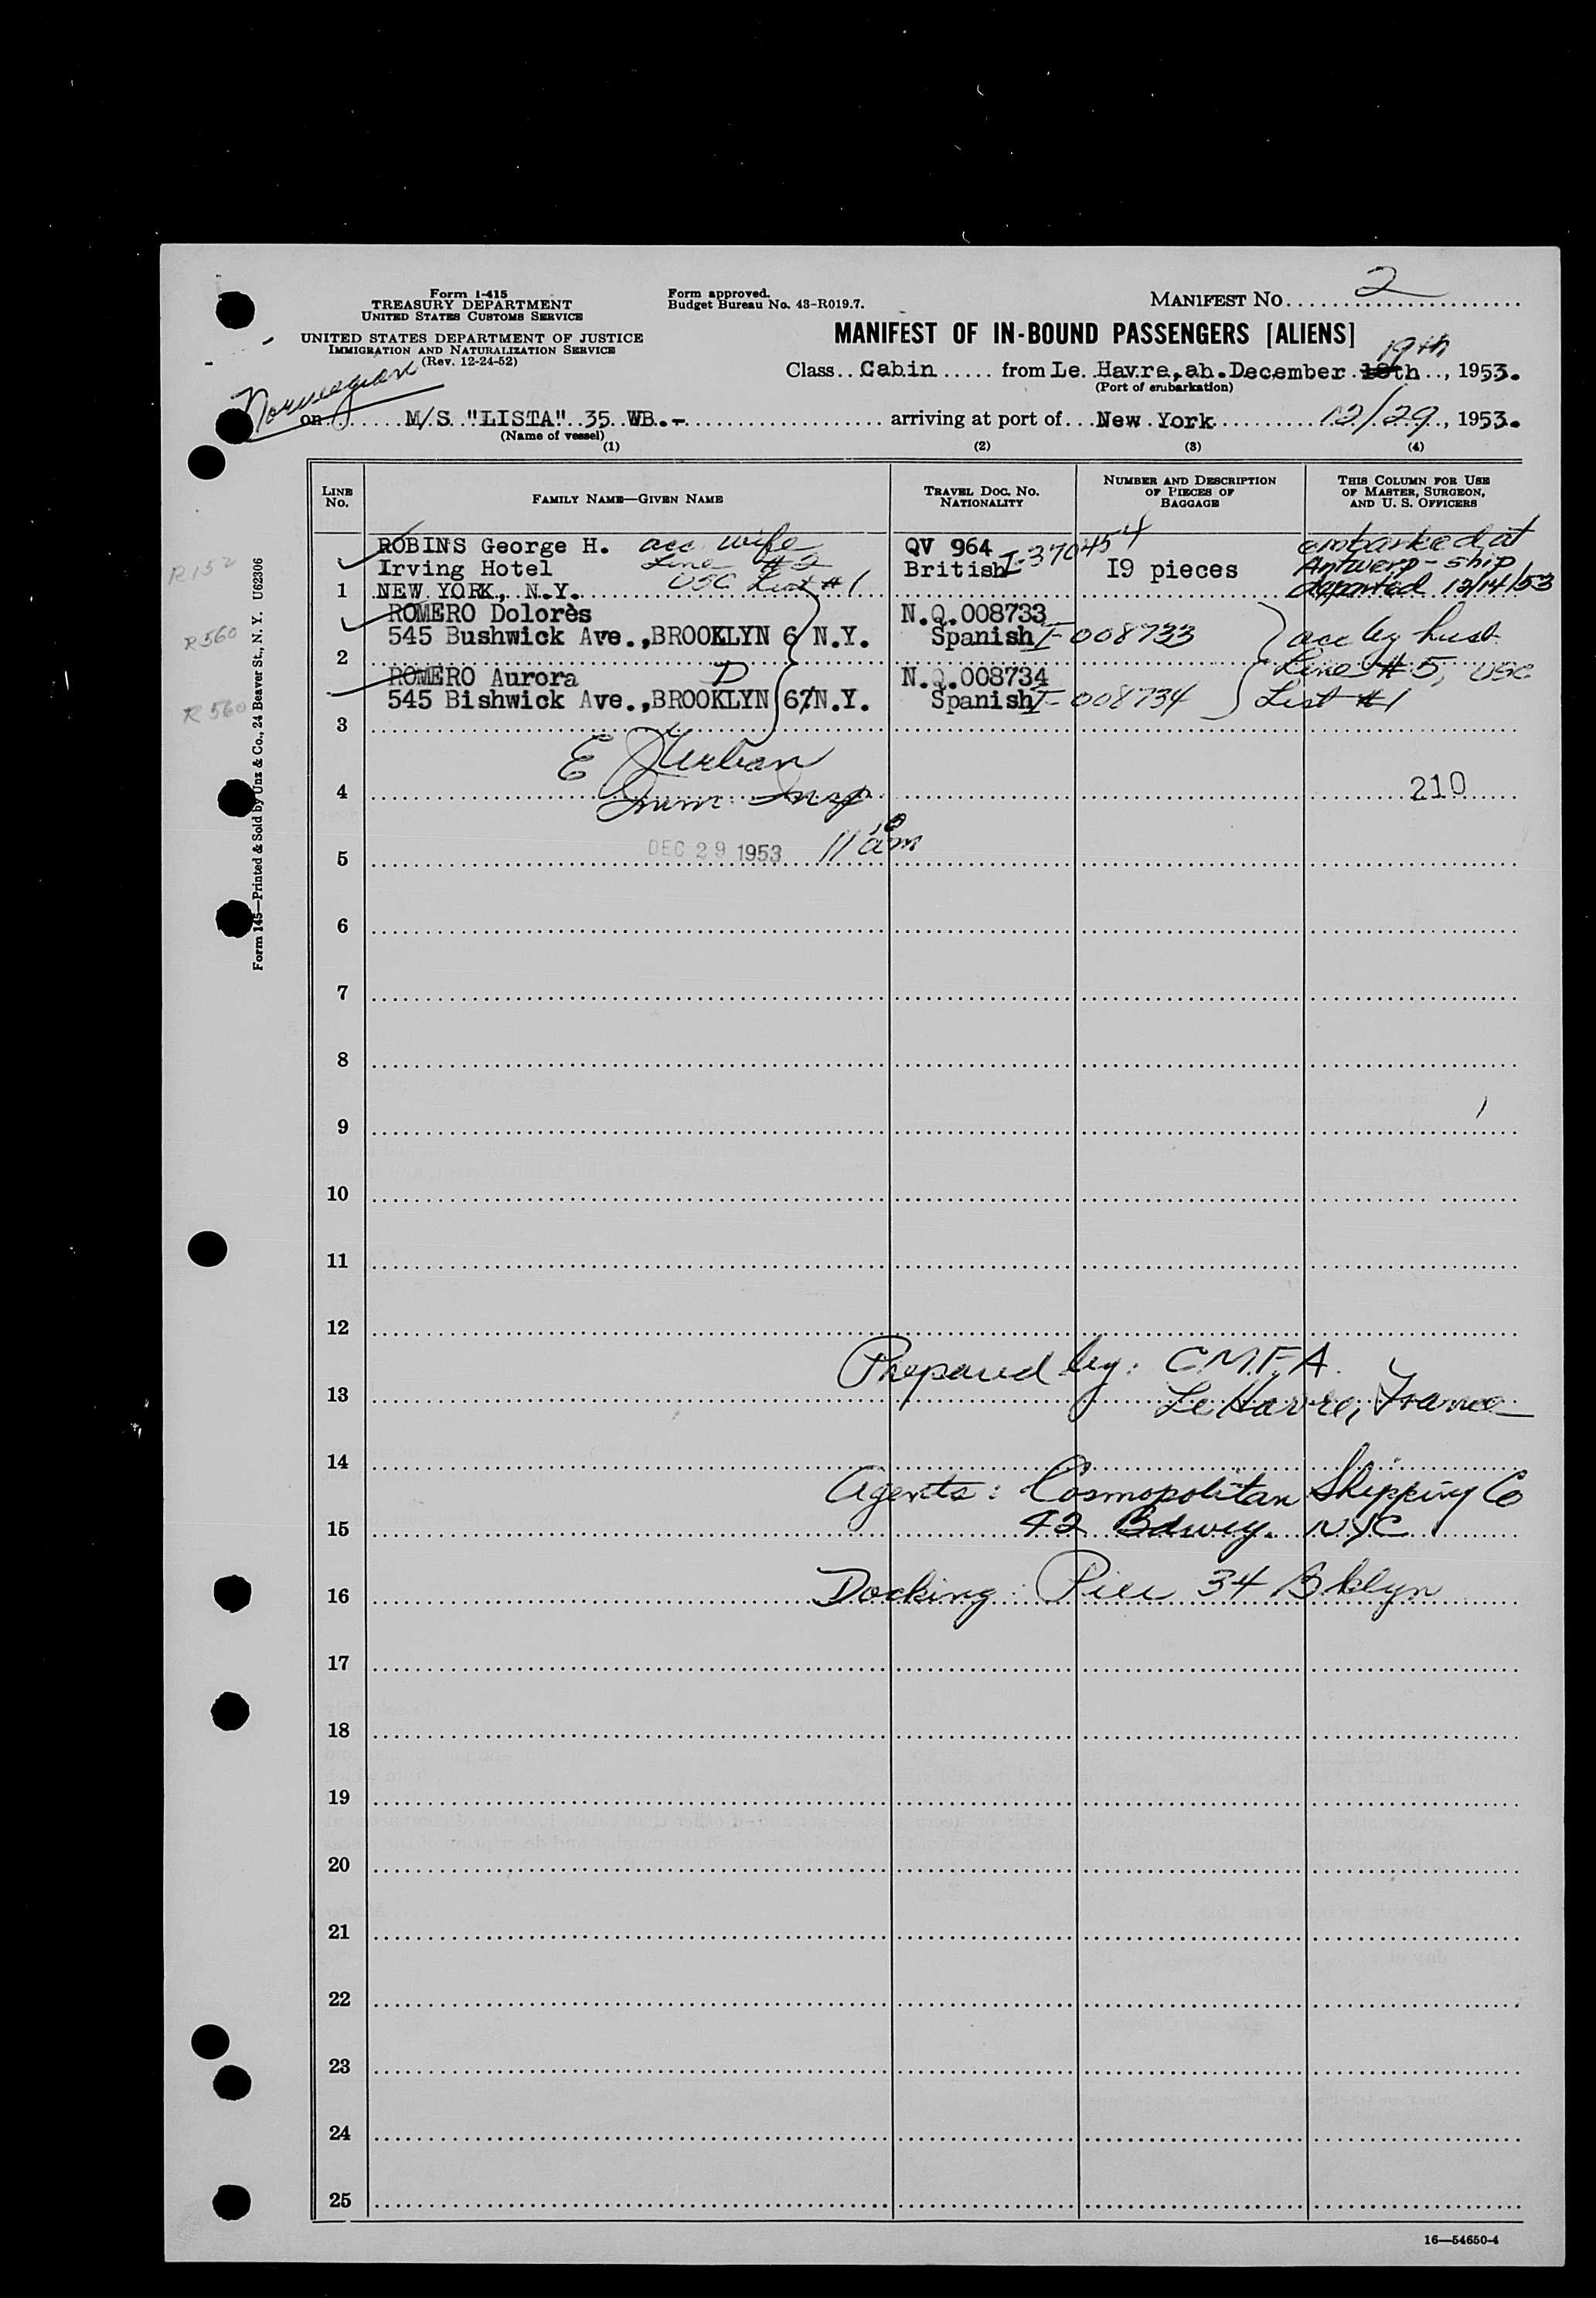 Form 1-415
TREASURY DEPARTMENT
UNITED STATES CUSTOMS SERVICE
UNITED STATES DEPARTMENT OF JUSTICE
IMMIGRATION AND NATURALIZATION SERVICE
(Rev. 12-24-52)
Form approved.
Budget Bureau No. 43-R019.7.
MANIFEST NO. 2
MANIFEST OF IN-BOUND PASSENGERS [ALIENS]
19th
Class Cabin from Le Havre, ah. December 18th, 1953.
(Port of embarkation)
Norwegian
on M/S "LISTA" 35 WB.- arriving at port of New York 12/29, 1953.
(Name of vessel)
(1) (2) (3) (4)
LINE No.
FAMILY NAME—GIVEN NAME
TRAVEL DOC. NO. NATIONALITY
NUMBER AND DESCRIPTION OF PIECES OF BAGGAGE
THIS COLUMN FOR USE OF MASTER, SURGEON, AND U. S. OFFICERS
R152
ROBINS George H. acc wife QV 964 I-370454 embarked at
Irving Hotel Line #2 British I9 pieces Antwerp - ship
1 NEW YORK, N.Y. USC List #1 departed 12/14/53
R560
ROMERO Dolorès N.Q.008733
545 Bushwick Ave.,BROOKLYN 6 N.Y. Spanish I-008733 acc by husb
2
R560
ROMERO Aurora D N.Q.008734 Line #5, USC
545 Bishwick Ave.,BROOKLYN 6 N.Y. Spanish I-008734 List #1
3
E Urban
4 Imm Insp 210
5 DEC 29 1953 11 10 am
6
7
8
9
10
11
12
Prepared by: C.M.F.A.
13 Le Havre, France
14
Agents: Cosmopolitan Shipping Co
15 42 Bdwy. NYC
16 Docking: Pier 34 Bklyn
17
18
19
20
21
22
23
24
25
16—54650-4
Form 145—Printed & Sold by Unz & Co., 24 Beaver St., N. Y. U62306